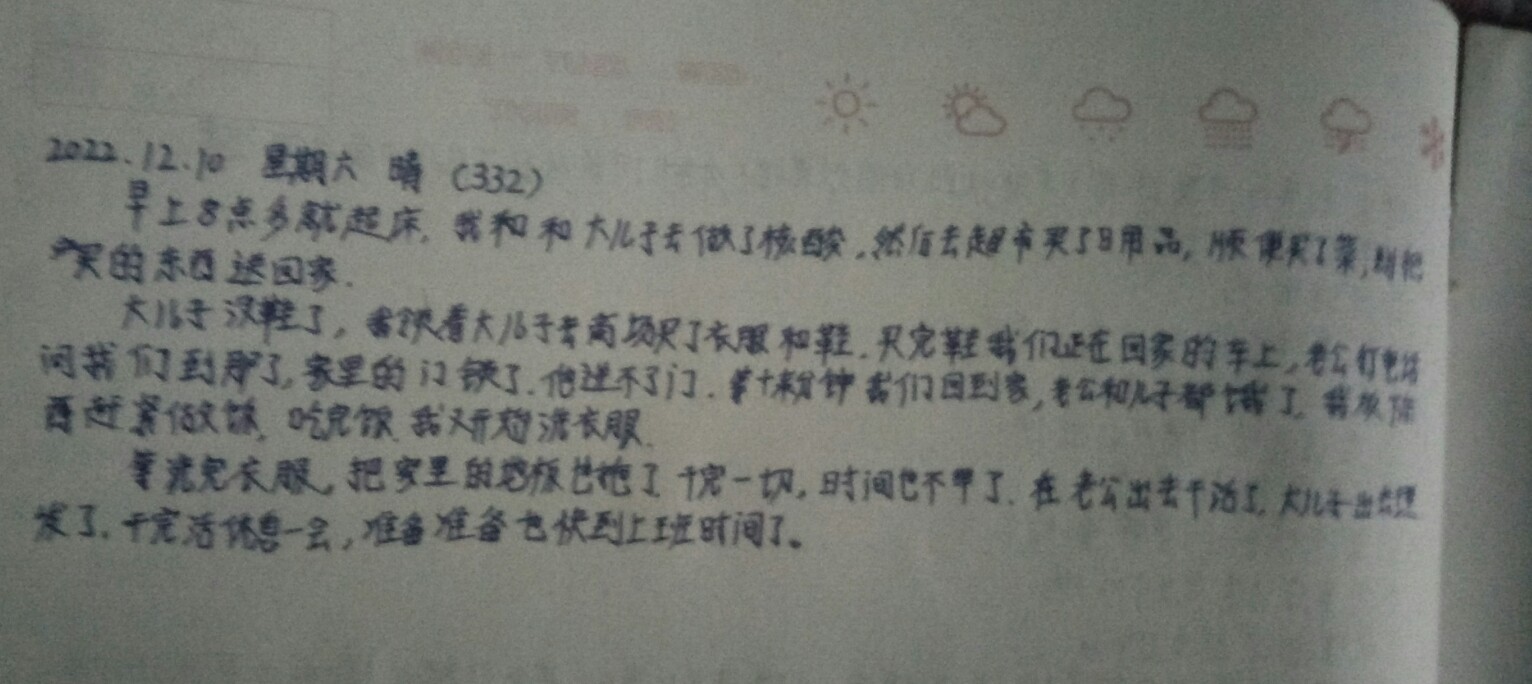 2022.12.10 星期六 晴 (332)
早上8点多就起床,我和和大儿子去做了核酸,然后去超市买了日用品,顺便买了菜,把
买的东西送回家.
大儿子没鞋了,我领着大儿子去商场买了衣服和鞋.买完鞋我们正在回家的车上,老公打电话
问我们到那了,家里的门锁了.他进不了门.等十来分钟我们回到家,老公和儿子都饿了.我放下
西赶紧做饭,吃完饭我又开始洗衣服.
等洗完衣服,把家里的地板也拖了.干完一切,时间也不早了.在老公出去干活了,大儿子出去理
发了.干完活休息一会,准备准备也快到上班时间了。